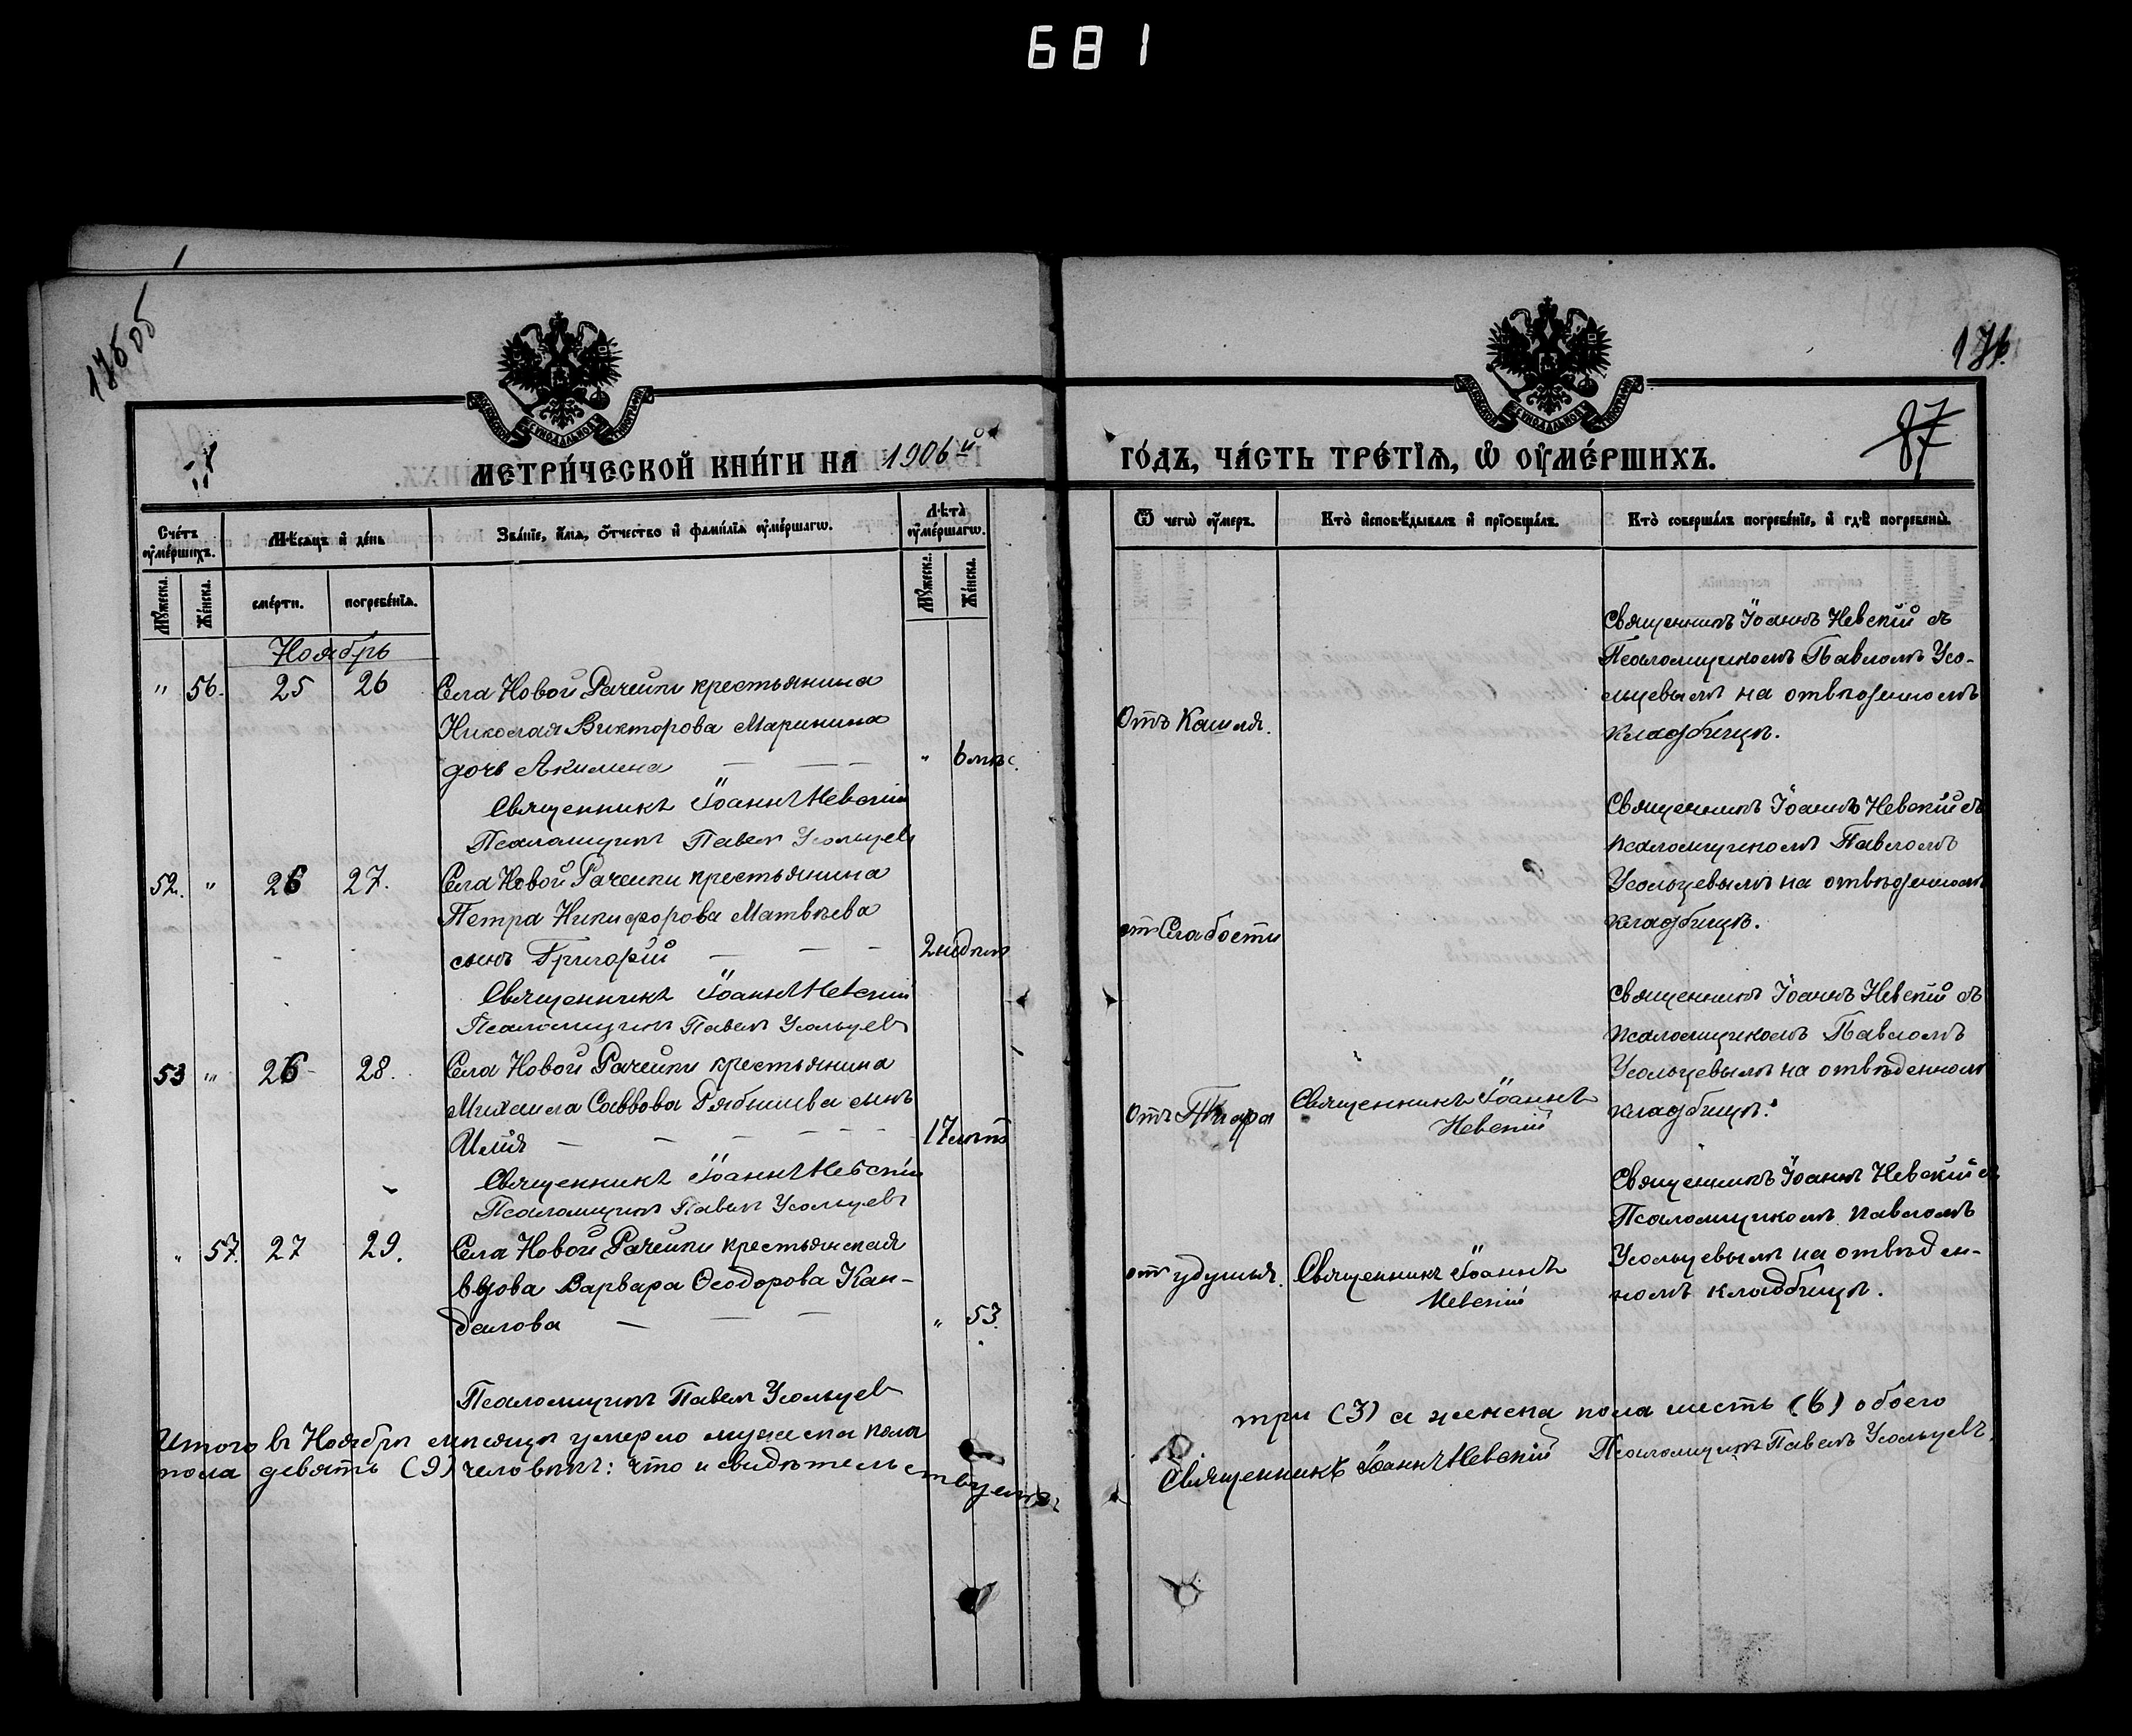 681
175 об
176.
87
МЕТРИ́ЧЕСКОЙ КНИ́ГИ НА 1906й
ГО́ДЪ, ЧА́СТЬ ТРЕ́ТЇѦ, Ѽ ОУ҆МЕ́РШИХЪ.
Сче́тъ оу҆ме́ршихъ.
Мѣ́сѧцъ и҆ де́нь
Зва́нїе, и҆́мѧ, ѻ҆́тчество и҆ фами́лїѧ оу҆ме́ршагѡ.
Лѣ́та оу҆ме́ршагѡ.
Ѿ чегѡ̀ оу҆́меръ.
Кто̀ и҆сповѣ́дывалъ и҆ прїѡбща́лъ.
Кто̀ соверша́лъ погребе́нїе, и҆ гдѣ̀ погребены̀.
Мꙋ́жеска.
Же́нска.
сме́рти.
погребе́нїѧ.
Мꙋ́жеска.
Же́нска.
Ноябрь
" 56. 25 26
Села Новой Рачейки крестьянина
Николая Викторова Маринина
дочь Акилина — — — " 6 мѣс.
Священникъ Іоаннъ Невскій
Псаломщикъ Павелъ Усольцевъ
Отъ Кашля.
Священникъ Іоаннъ Невскій съ
Псаломщикомъ Павломъ Усо-
льцевымъ на отведенномъ
кладбищѣ.
52. " 26 27.
Села Новой Рачейки крестьянина
Петра Никифорова Матвѣева
сынъ Григорій — — - 2 недѣли
Священникъ Іоаннъ Невскій
Псаломщикъ Павелъ Усольцевъ
отъ Слабости
Священникъ Іоаннъ Невскій съ
псаломщикомъ Павломъ
Усольцевымъ на отведенномъ
кладбищѣ.
53 " 26 28.
Села Новой Рачейки крестьянина
Михаила Саввова сынъ
Илія — — — - - 17 лѣтъ
Священникъ Іоаннъ Невскій
Псаломщикъ Павелъ Усольцевъ
Отъ
Священникъ Іоаннъ
Невскій
Священникъ Іоаннъ Невскій съ
псаломщикомъ Павломъ
Усольцевымъ на отвѣденномъ
кладбищѣ.
" 57. 27 29.
Села Новой Рачейки крестьянская
вдова Варвара Ѳеодорова Кан-
далова — — — " 53.
Псаломщикъ Павелъ Усольцевъ
отъ удушья.
Священникъ Іоаннъ
Невскій
Священникъ Іоаннъ Невскій съ
Псаломщикомъ Павломъ
Усольцевымъ на отвѣден-
номъ кладбищѣ.
Итого въ Ноябрѣ мѣсяцѣ умерло мужеска пола
три (3) а женска пола шесть (6) обоего
пола девять (9) человѣкъ: что и свидѣтельствуемъ
Священникъ Іоаннъ Невскій Псаломщикъ Павелъ Усольцевъ.